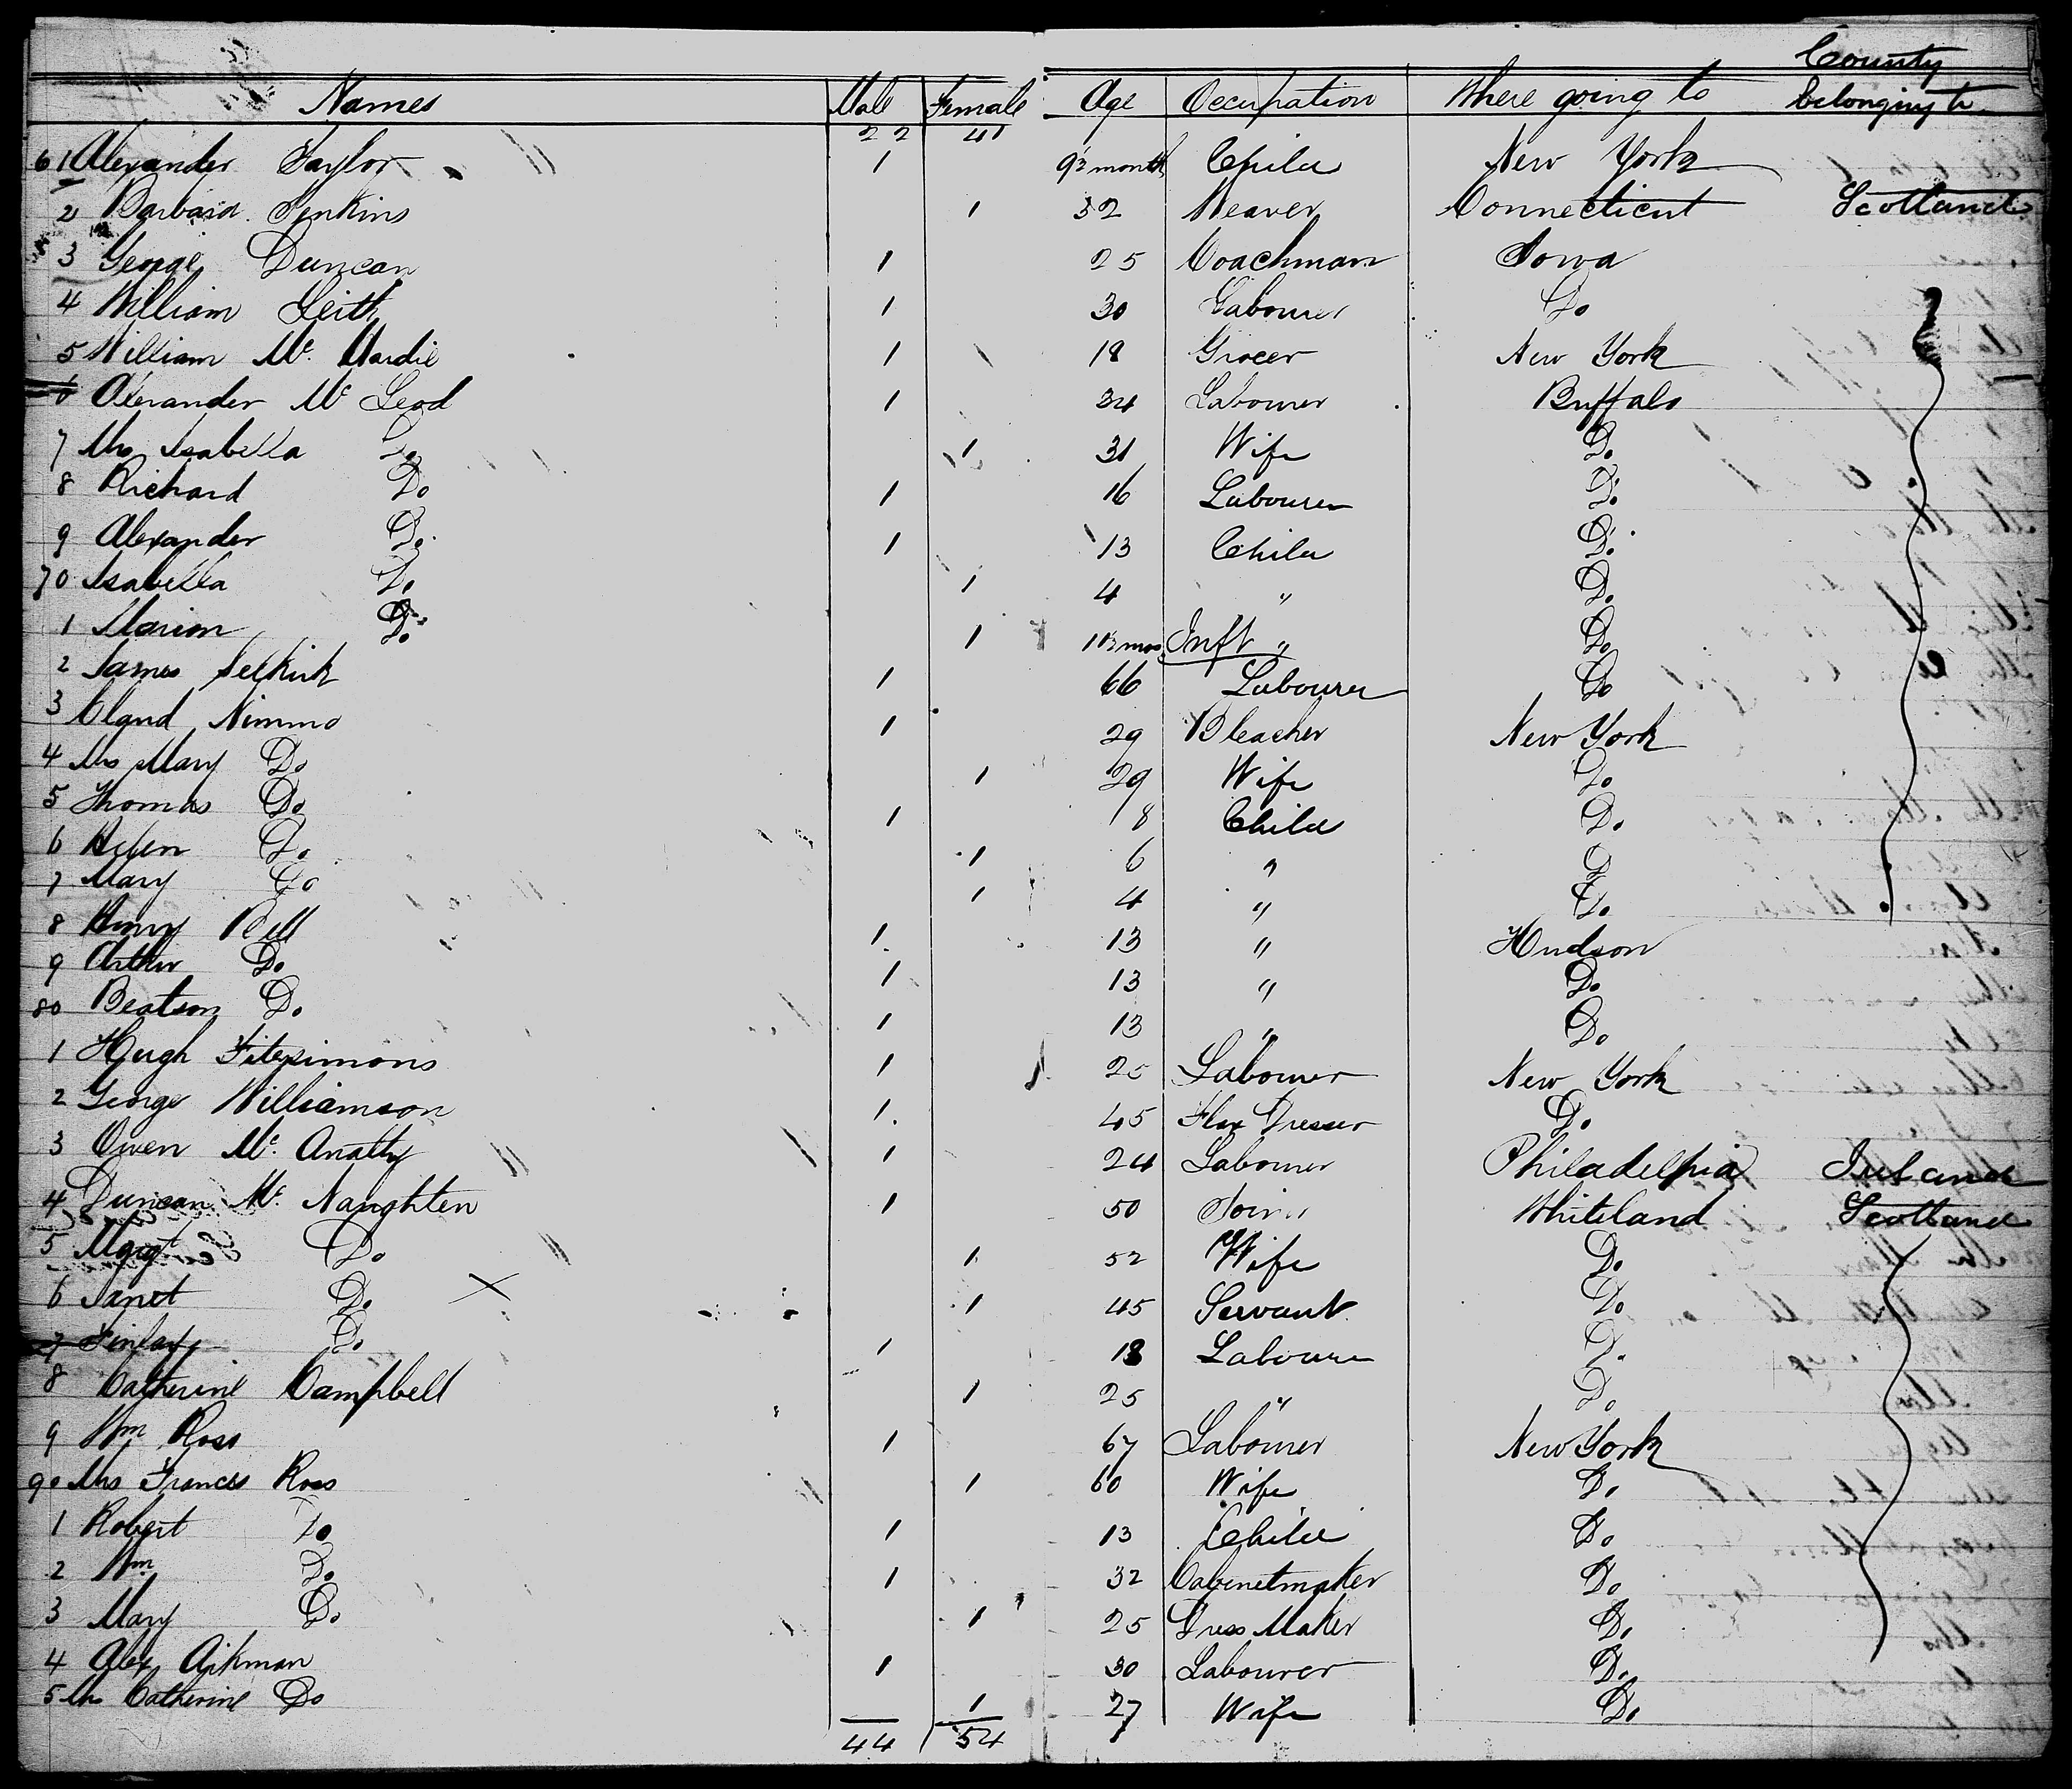 County
Names Male Female Age Occupation Where going to belonging to
22 41
61 Alexander Taylor 1 9 month Child New York
2 Barbara Jenkins 1 32 Weaver Connecticut Scotland
3 George Duncan 1 25 Coachman Iowa
4 William Leith 1 30 Labourer Do
5 William Mc. Hardie 1 18 Grocer New York
6 Alexander Mc Leod 1 34 Labourer Buffalo
7 Mrs Isabella Do 1 31 Wife Do
8 Richard Do 1 16 Labourer Do
9 Alexander Do 1 13 Child Do
70 Isabella Do 1 4 " Do
1 Marion Do 1 mos Inft " Do
2 James Selkirk 1 66 Labourer Do
3 Cland Nimmo 1 29 Bleacher New York
4 Mrs Mary Do 1 29 Wife Do
5 Thomas Do 1 8 Child Do
6 Helen Do 1 6 " Do
7 Mary Do 1 4 " Do
8 Henry Bell 1 13 " Hudson
9 Arthur Do 1 13 " Do
80 Beatson Do 1 13 " Do
1 Hugh Fitzsimons 1 25 Labourer New York
2 George Williamson 1 45 Flax Dresser Do
3 Owen Mc. Anatty 1 24 Labourer Philadelphia Ireland
4 Duncan Mc. Naughten 1 50 Joiner Whiteland Scotland
5 Margt Do 1 52 Wife Do
6 Janet Do 1 45 Servant Do
7 Finlay Do 1 18 Labourer Do
8 Catherine Campbell 1 25 " Do
9 Wm Ross 1 67 Labourer New York
90 Mrs Frances Ross 1 60 Wife Do
1 Robert Do 1 13 Child Do
2 Wm Do 1 32 Cabinetmaker Do
3 Mary Do 1 25 Dress Maker Do
4 Alex Aikman 1 30 Labourer Do
5 Mrs Catherine Do 1 27 Wife Do
44 54